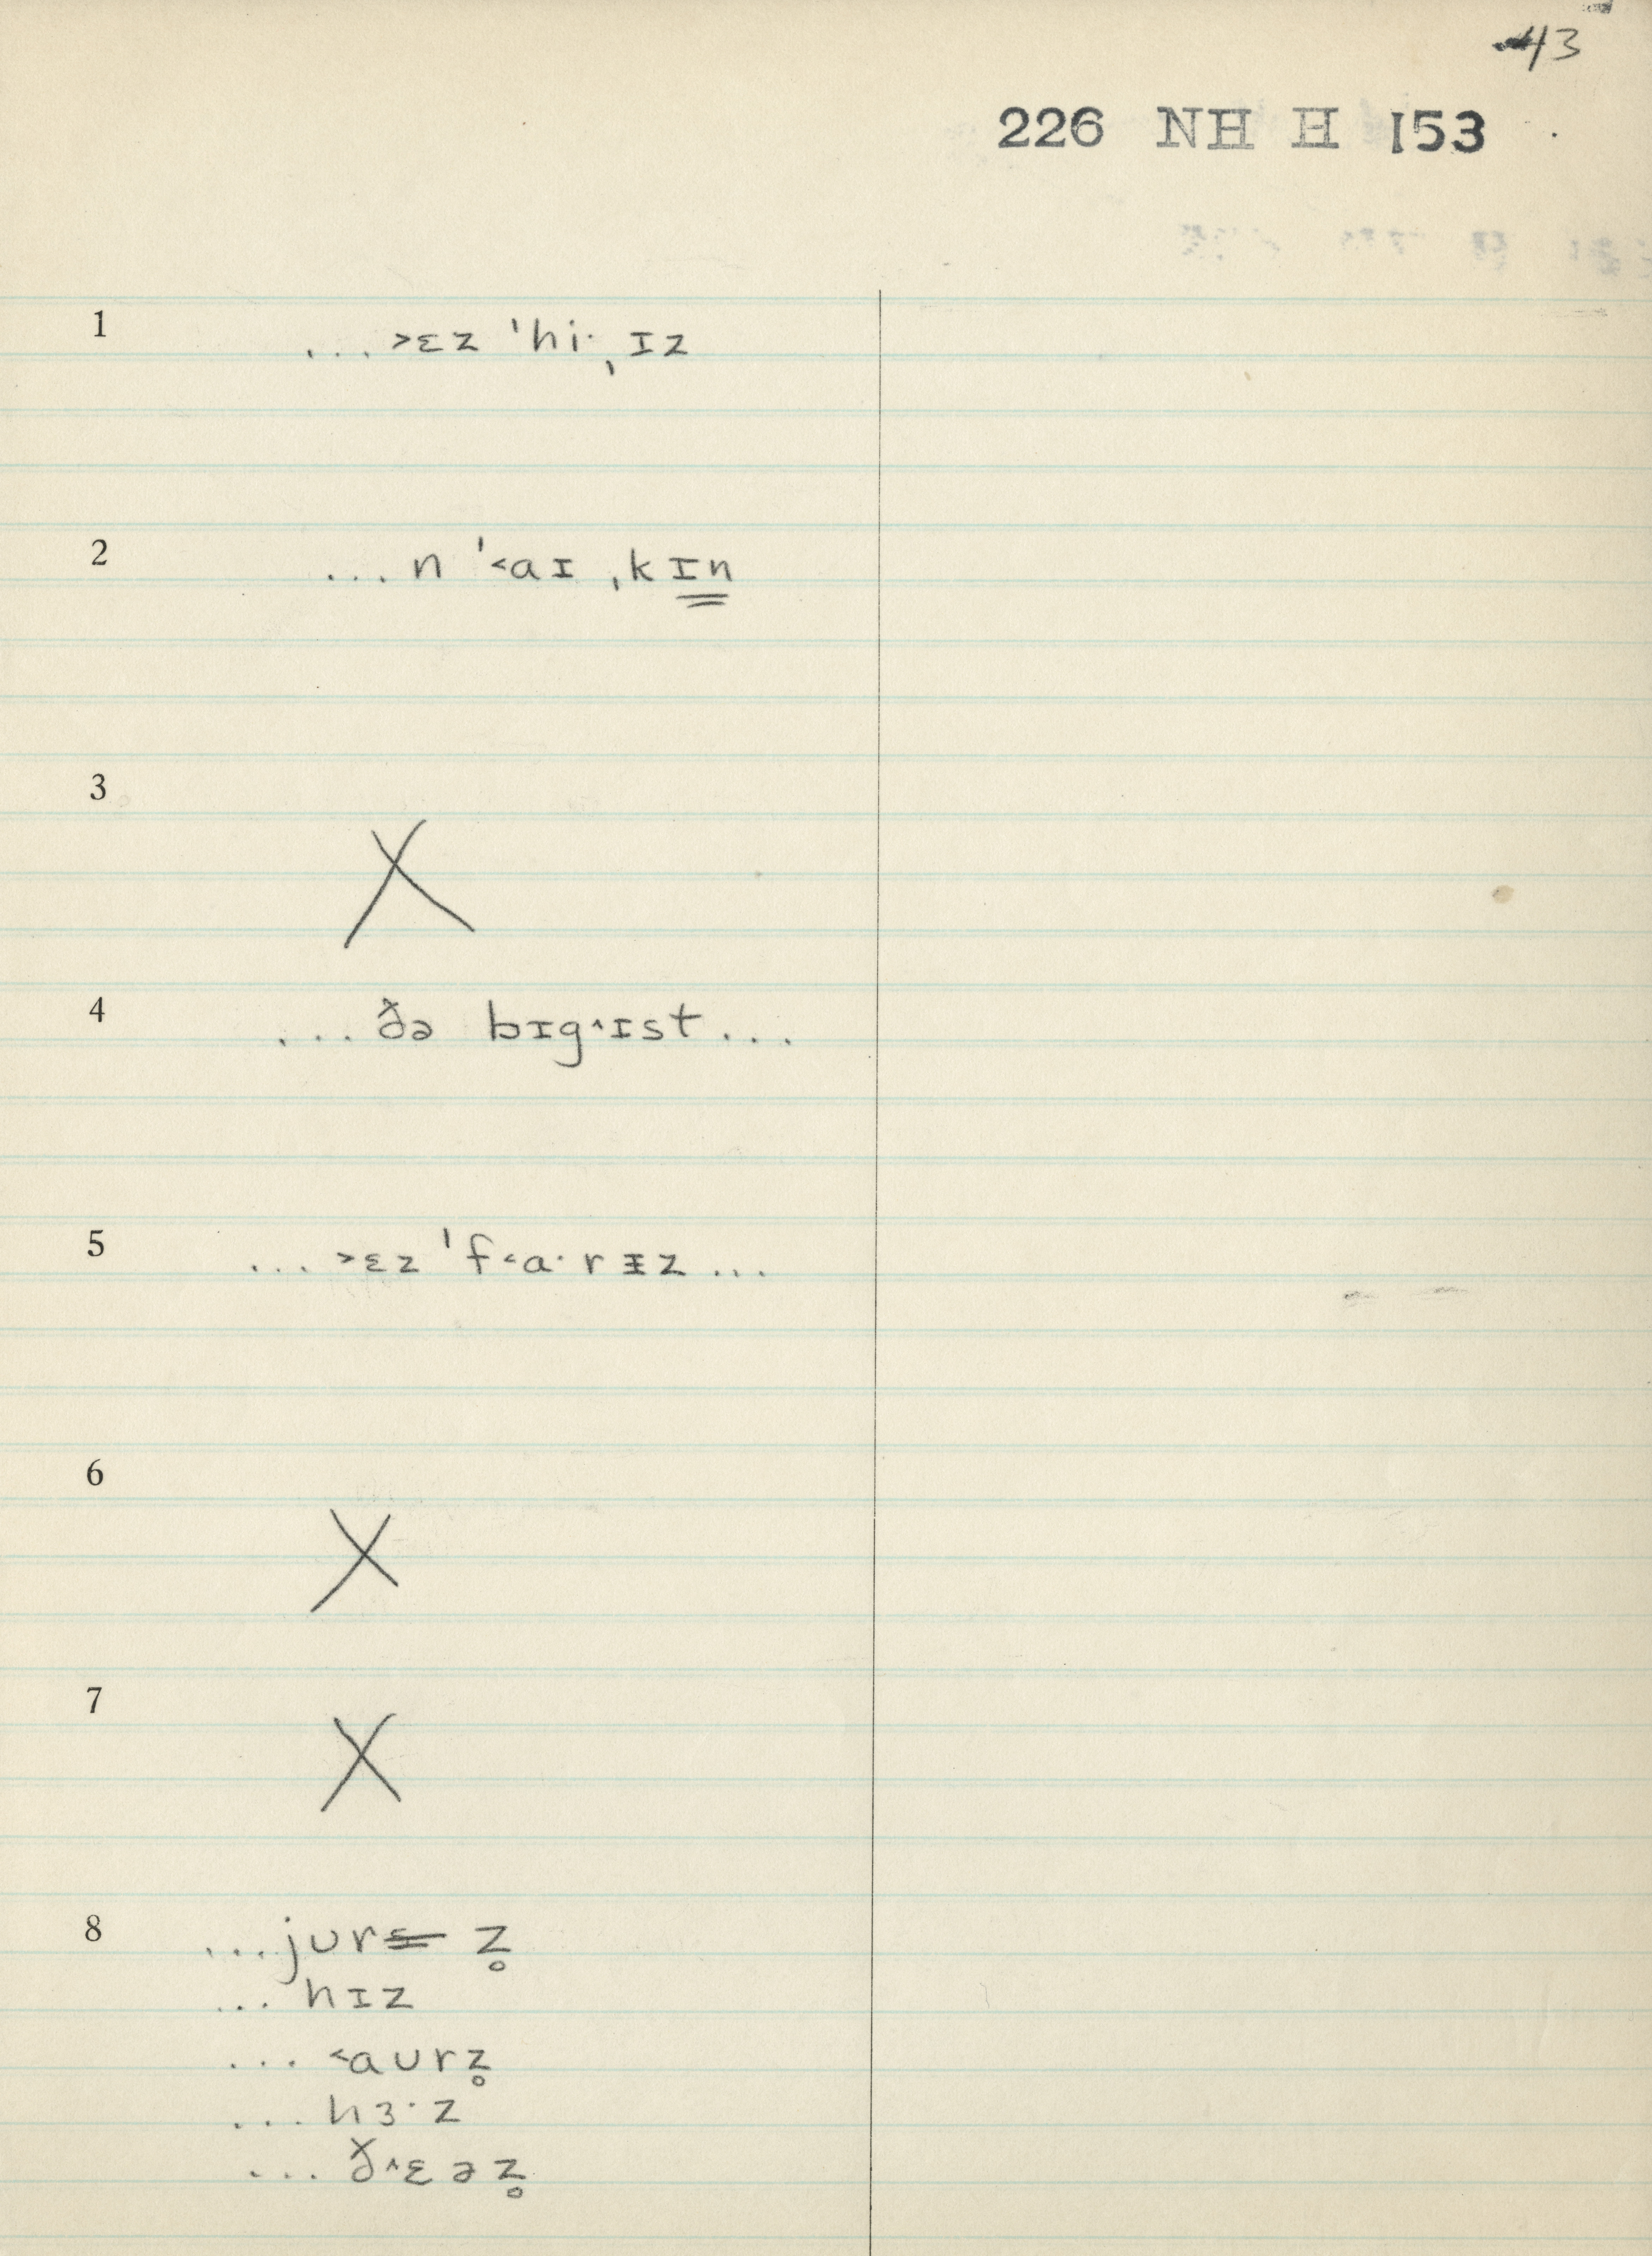 43
226 NH H 153
1 ... ˃ɛz ˈhi· ˌɪz
2 ... n ˈ˂aɪ ˌkɪn
3 X
4 ... ðə bɪg˄ɪst ...
5 ... ˃ɛz ˈf˂a·rɨz ...
6 X
7 X
8 ... jʊr z̥
... hɪz
... ˂aʊrz̥
... hɜ·z
... ð˄ɛəz̥